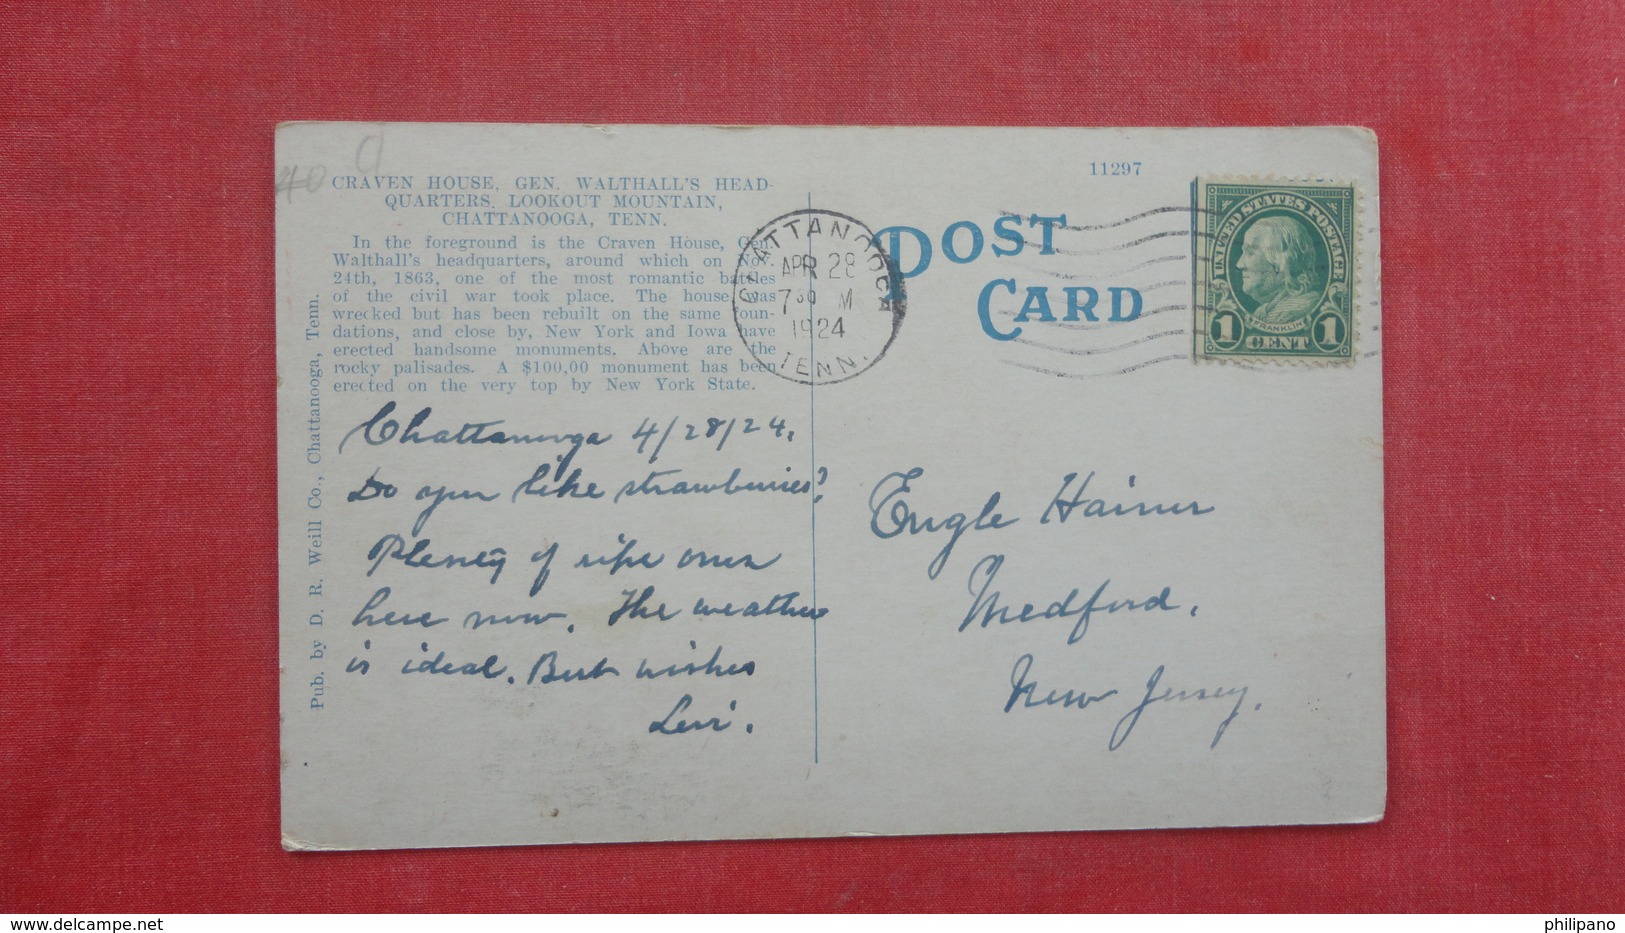 40 a
CRAVEN HOUSE, GEN. WALTHALL'S HEAD-
QUARTERS, LOOKOUT MOUNTAIN,
CHATTANOOGA, TENN.
In the foreground is the Craven House, Gen.
Walthall's headquarters, around which on Nov.
24th, 1863, one of the most romantic battles
of the civil war took place. The house was
wrecked but has been rebuilt on the same foun-
dations, and close by, New York and Iowa have
erected handsome monuments. Above are the
rocky palisades. A $100,00 monument has been
erected on the very top by New York State.
Pub. by D. R. Weill Co., Chattanooga, Tenn.
Chattanooga 4/28/24.
Do you like strawberries?
Plenty of ripe ones
here now. The weather
is ideal. Best wishes
Levi.
CHATTANOOGA
APR 28
7 30 M
1924
TENN.
11297
POST
CARD
UNITED STATES POSTAGE
FRANKLIN
1 CENT 1
Engle Hainer
Medford,
New Jersey.
www.delcampe.net
philipano